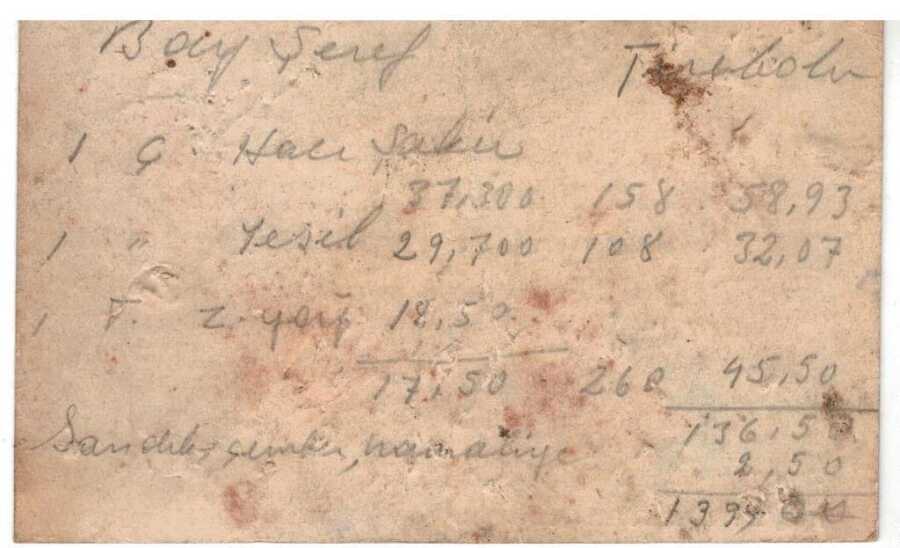 Bay Şeref Tirebolu
1 Ç. Hacı Şakir
37,300 158 58,93
1 " Yeşil 29,700 108 32,07
1 T. Z. yağı 18,50
17,50 260 45,50
136,5
Sandık, çember, hamaliye
2,50
139